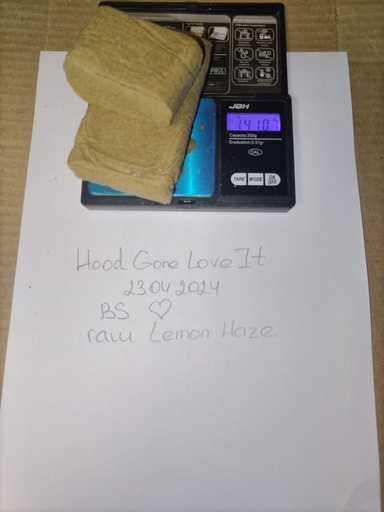 PASS
JBH
141.07
Capacity 200g
Graduation 0.01g
CAL
TARE
MODE
ON OFF
Hood Gone Love It
23 04 2024
BS ♡
raw Lemon Haze